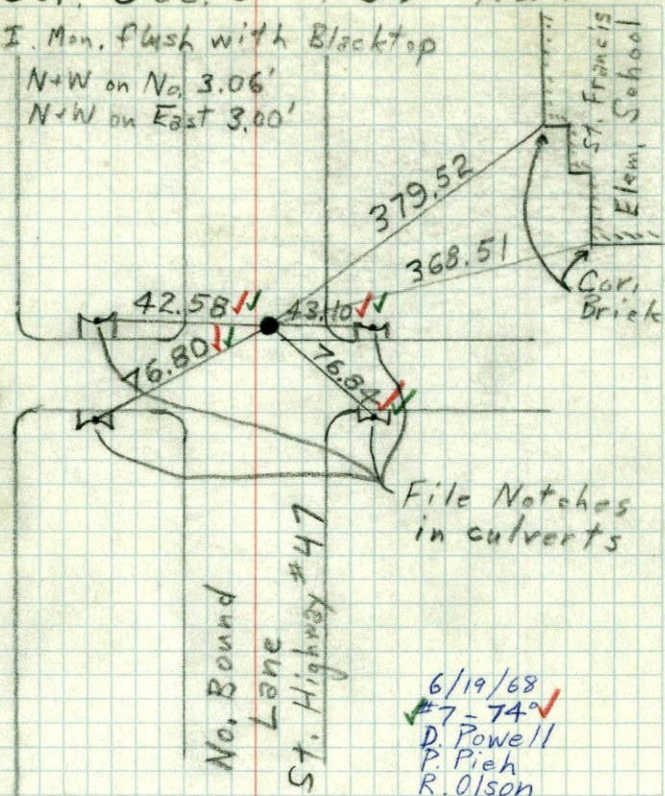 I. Mon. flush with Blacktop
N+W on No. 3.06'
N+W on East 3.00'
St. Francis
Elem. School
379.52
368.51
Cor.
Brick
42.58
43.10
76.80
76.84
File Notches
in culverts
No. Bound
Lane
St. Highway #47
6/19/68
#7 - 74°
D. Powell
P. Pieh
R. Olson